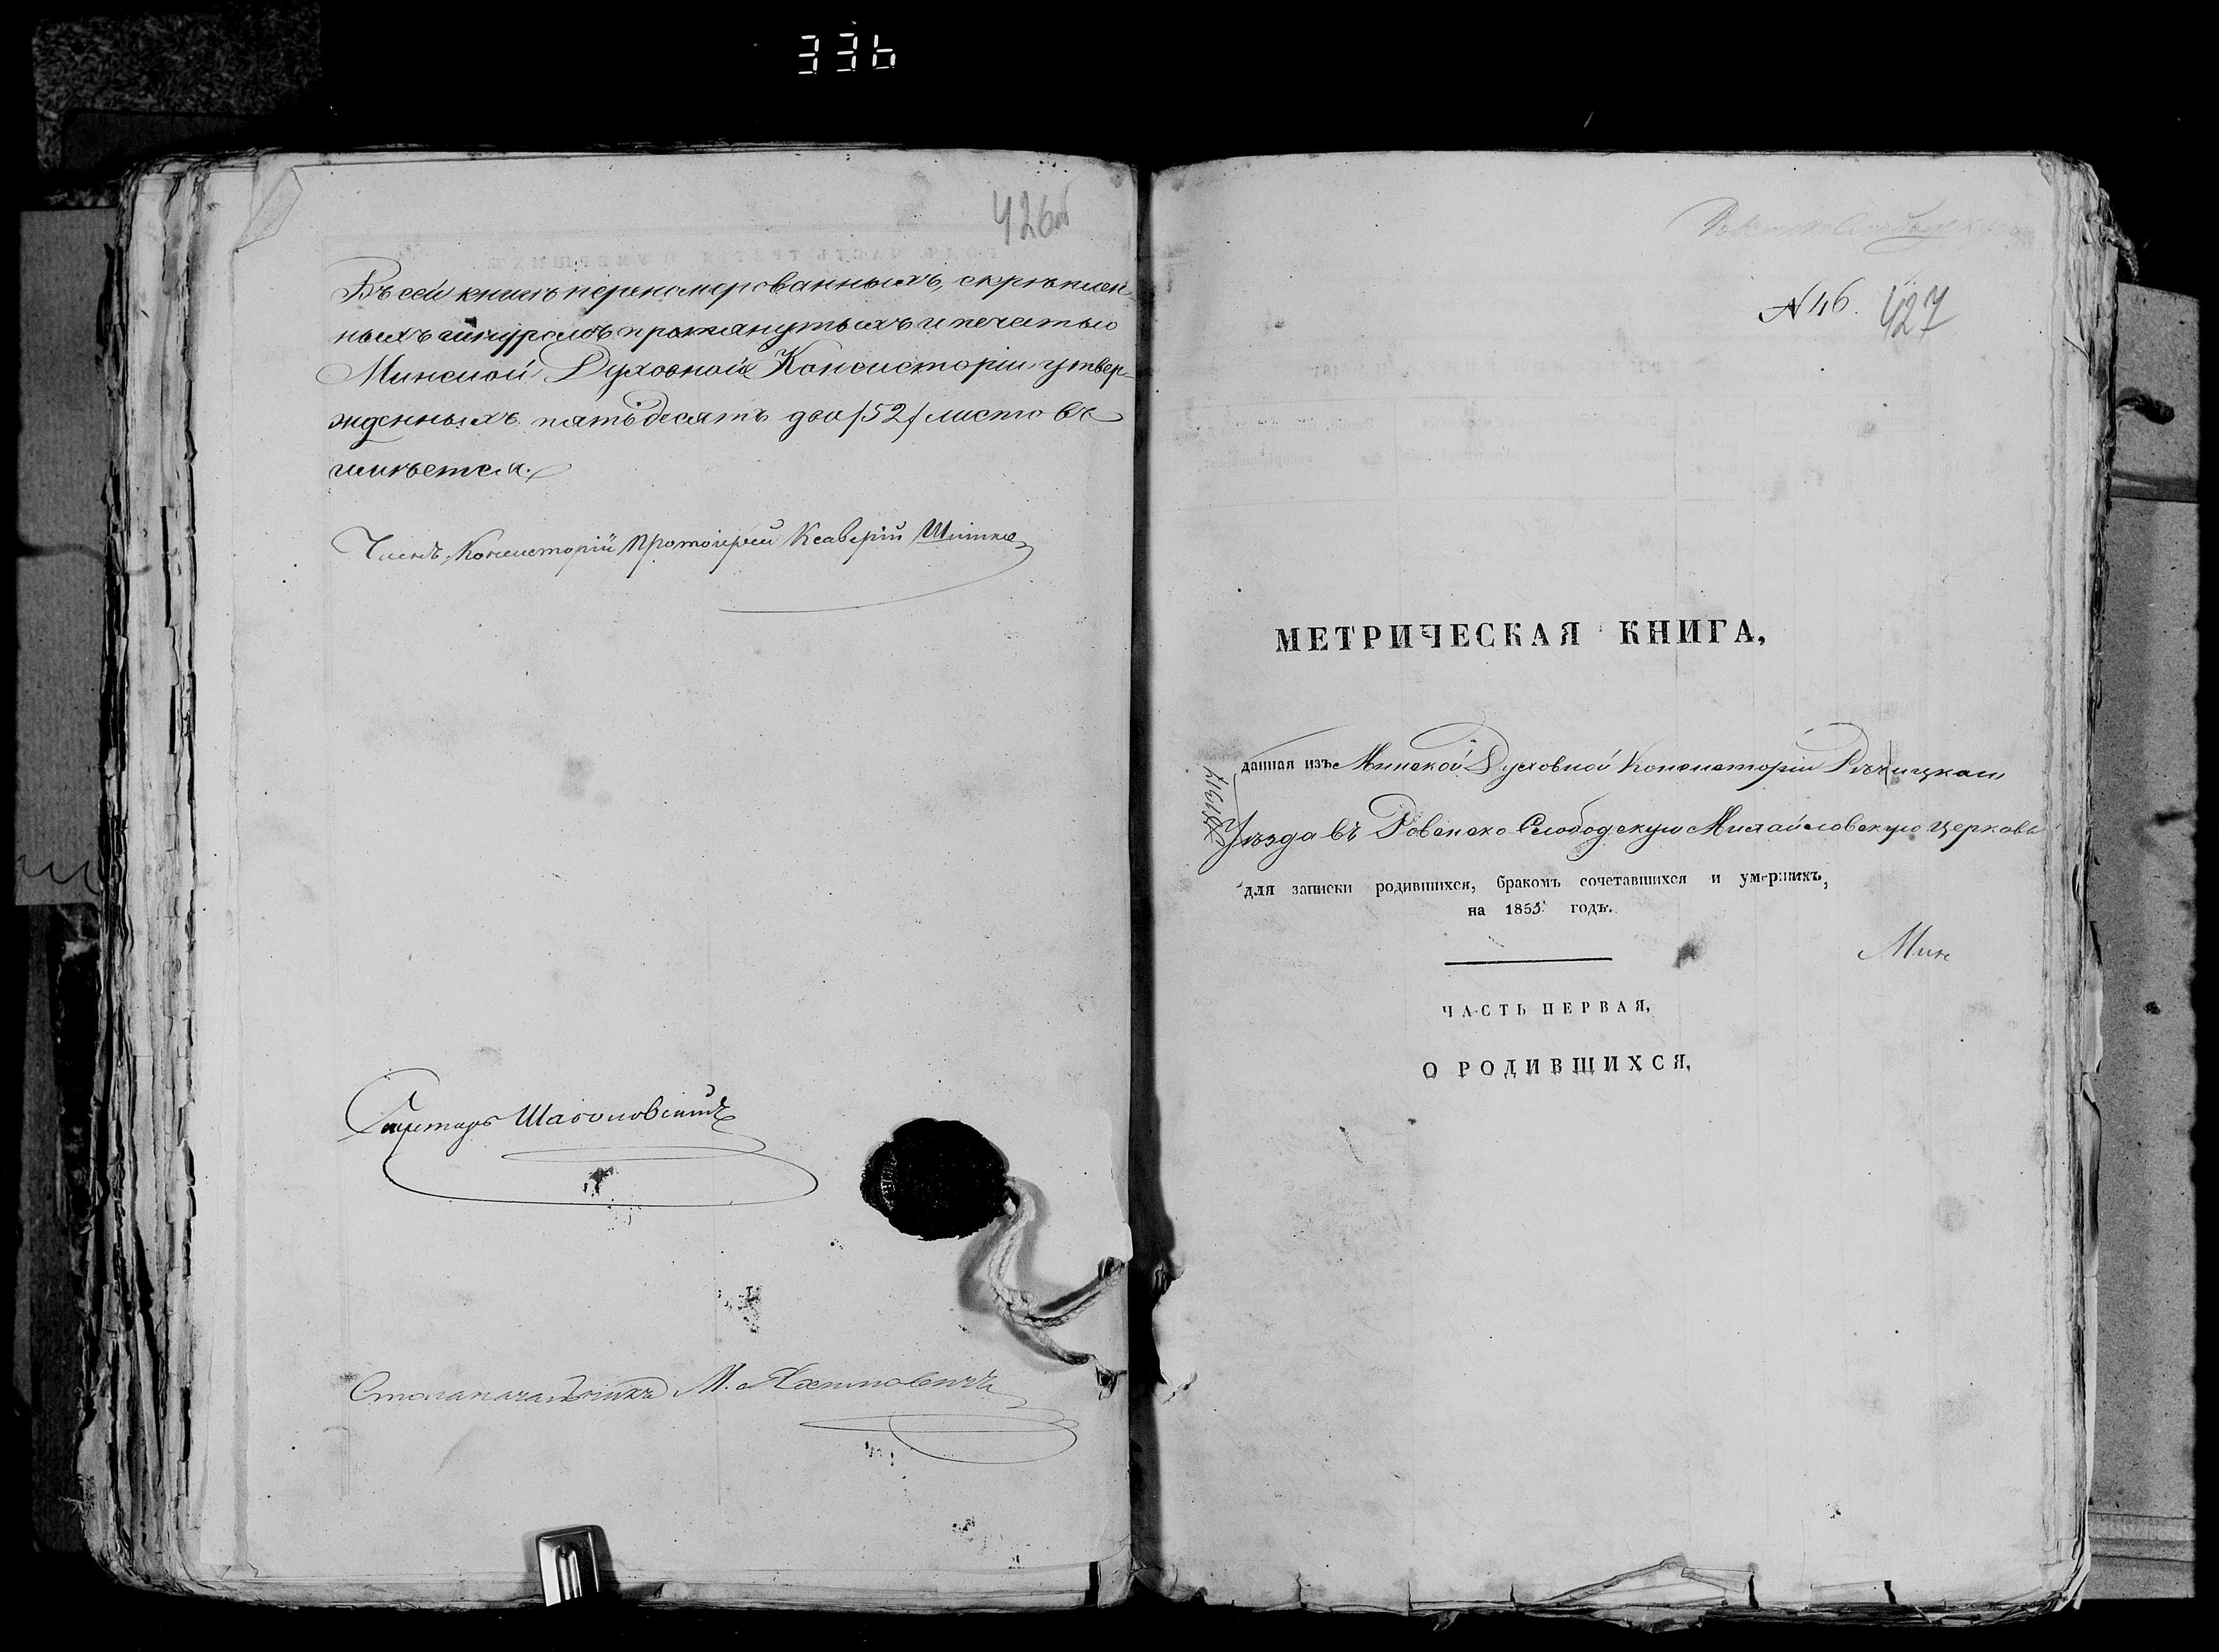 336
426об
Въ сей книгѣ перенумерованныхъ, скрѣплен-
ныхъ шнуромъ протянутыхъ и печатью
Минской Духовной Консисторіи утвер-
жденныхъ пятьдесятъ два /52/ листовъ
имѣется.
Членъ Консисторіи Протоіерей Ксаверій
Секретарь
Столоначальникъ М.
№ 46. 427
МЕТРИЧЕСКАЯ КНИГА,
данная изъ Минской Духовной Консисторіи Рѣчицкаго
Уѣзда въ Ровенско Слободскую Михайловскую церковь
для записки родившихся, бракомъ сочетавшихся и умершихъ,
на 1855 годъ.
Мин
ЧАСТЬ ПЕРВАЯ,
О РОДИВШИХСЯ,